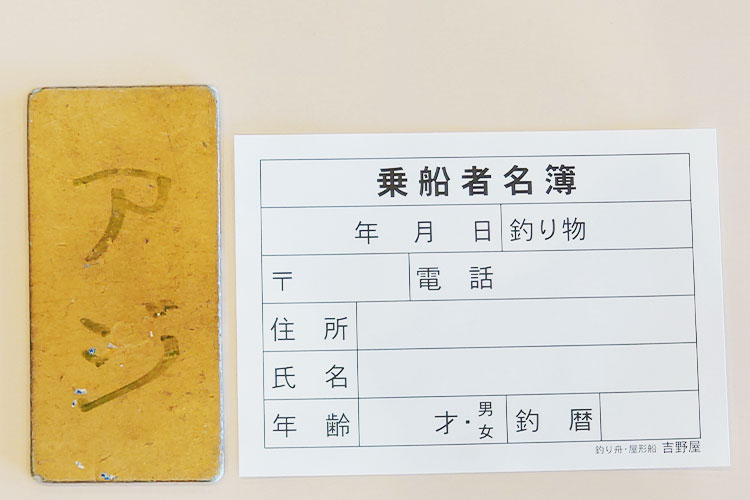 アジ
乗船者名簿
年 月 日 釣り物
〒 電話
住所
氏名
年齢 才・男女 釣暦
釣り舟・屋形船 吉野屋